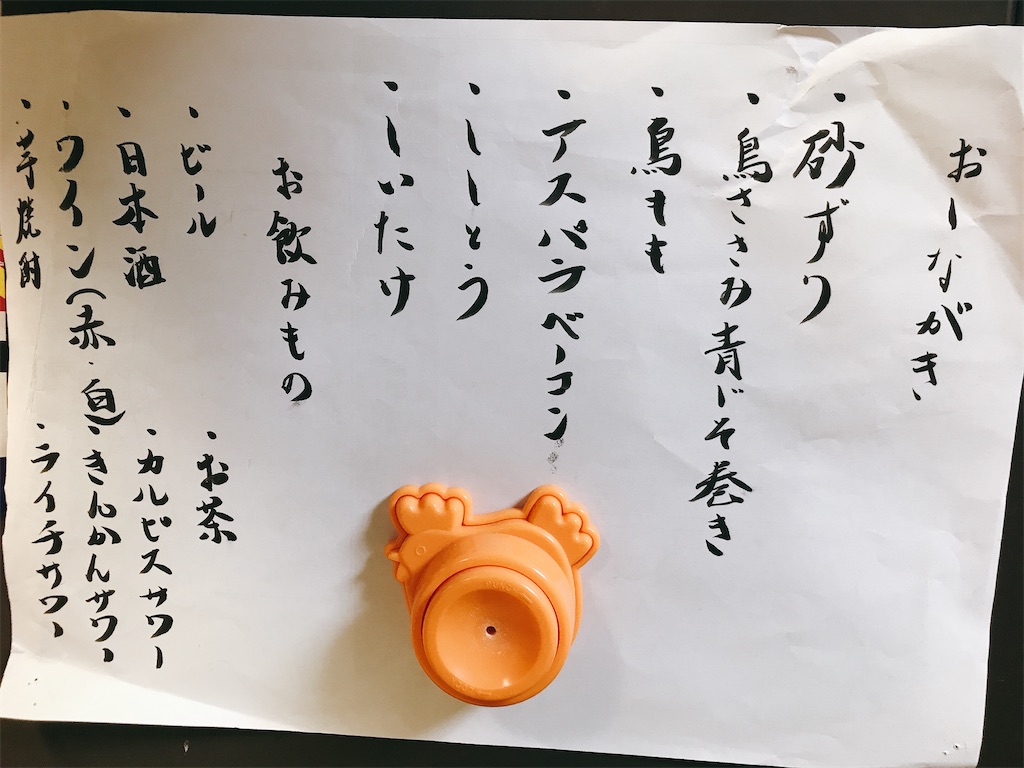 おーながき
・砂ずり
・鳥ささみ青じそ巻き
・鳥もも
・アスパラベーコン
・ししとう
・しいたけ
お飲みもの
・ビール
・お茶
・日本酒
・カルピスサワー
・ワイン(赤・白)
・きんかんサワー
・芋焼酎
・ライチサワー